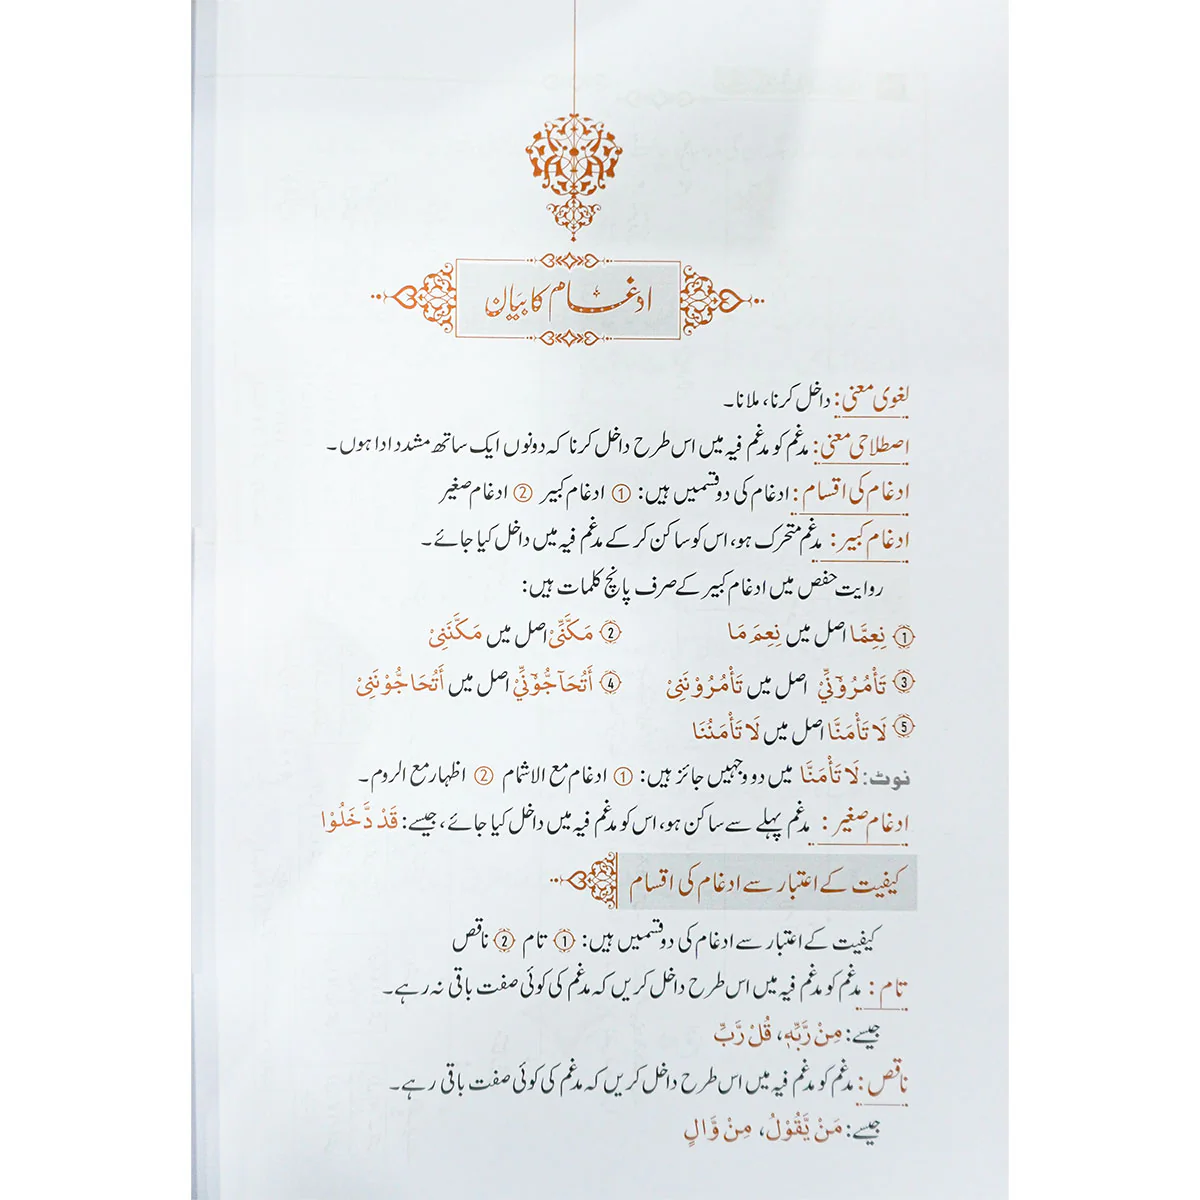 ادغام کا بیان
لغوی معنی: داخل کرنا، ملانا۔
اصطلاحی معنی: مدغم کو مدغم فیہ میں اس طرح داخل کرنا کہ دونوں ایک ساتھ مشدد ادا ہوں۔
ادغام کی اقسام: ادغام کی دو قسمیں ہیں: ① ادغام کبیر ② ادغام صغیر
ادغام کبیر: مدغم متحرک ہو، اس کو ساکن کر کے مدغم فیہ میں داخل کیا جائے۔
روایت حفص میں ادغام کبیر کے صرف پانچ کلمات ہیں:
① نِعِمَّا اصل میں نِعِمَ مَا ② مَكَّنِّىْ اصل میں مَكَّنَنِىْ
③ تَأْمُرُوْٓنِّيْ اصل میں تَأْمُرُوْنَنِىْ ④ أَتُحَآجُّوْٓنِّيْ اصل میں أَتُحَاجُّوْنَنِىْ
⑤ لَا تَأْمَنَّا اصل میں لَا تَأْمَنُنَا
نوٹ: لَا تَأْمَنَّا میں دو وجہیں جائز ہیں: ① ادغام مع الاشمام ② اظہار مع الروم۔
ادغام صغیر: مدغم پہلے سے ساکن ہو، اس کو مدغم فیہ میں داخل کیا جائے، جیسے: قَدْ دَّخَلُوْا
کیفیت کے اعتبار سے ادغام کی اقسام
کیفیت کے اعتبار سے ادغام کی دو قسمیں ہیں: ① تام ② ناقص
تام: مدغم کو مدغم فیہ میں اس طرح داخل کریں کہ مدغم کی کوئی صفت باقی نہ رہے۔
جیسے: مِنْ رَّبِّهٖ، قُلْ رَّبِّ
ناقص: مدغم کو مدغم فیہ میں اس طرح داخل کریں کہ مدغم کی کوئی صفت باقی رہے۔
جیسے: مَنْ يَّقُوْلُ، مِنْ وَّالٍ